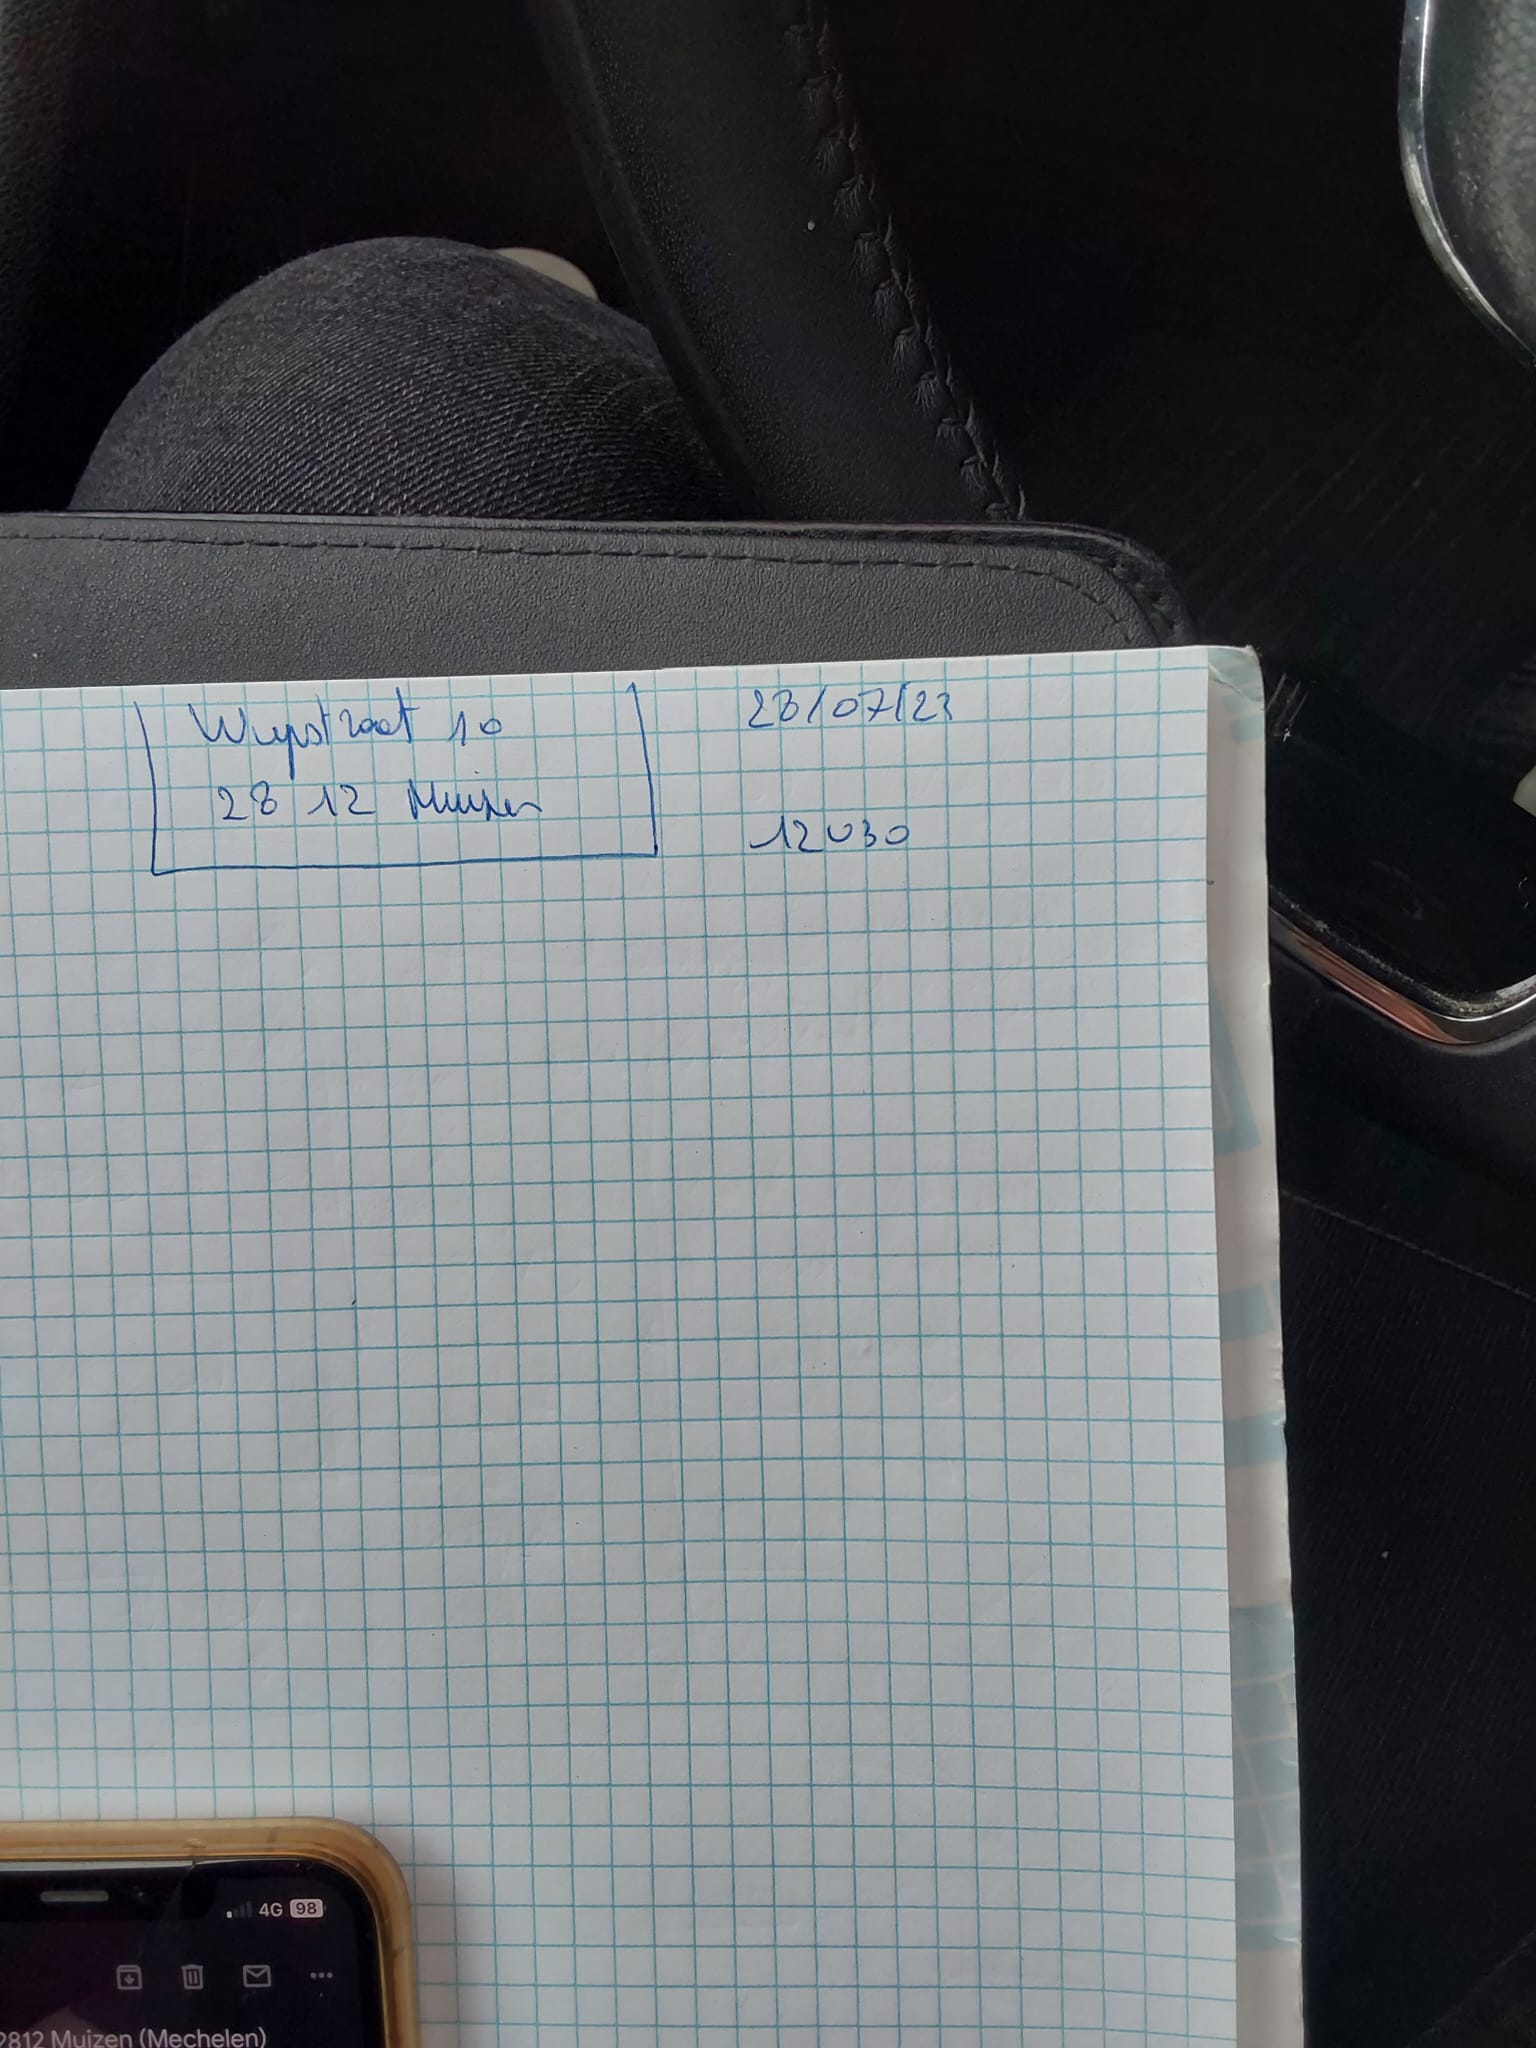 Wupstraat 10
28 12 Muizen
28/07/23
12u30
4G 98
2812 Muizen (Mechelen)